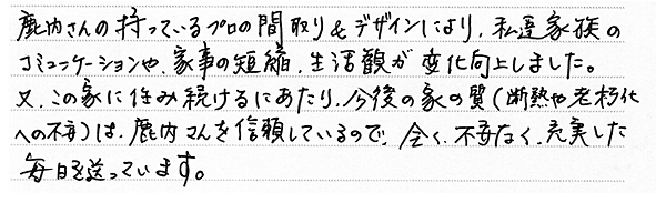 鹿内さんの持っているプロの間取り&デザインにより、私達家族の
コミュニケーションや、家事の短縮、生活観が変化向上しました。
又、この家に住み続けるにあたり、今後の家の質(断熱や老朽化
への不安)は、鹿内さんを信頼しているので、全く、不安なく、充実した
毎日を送っています。